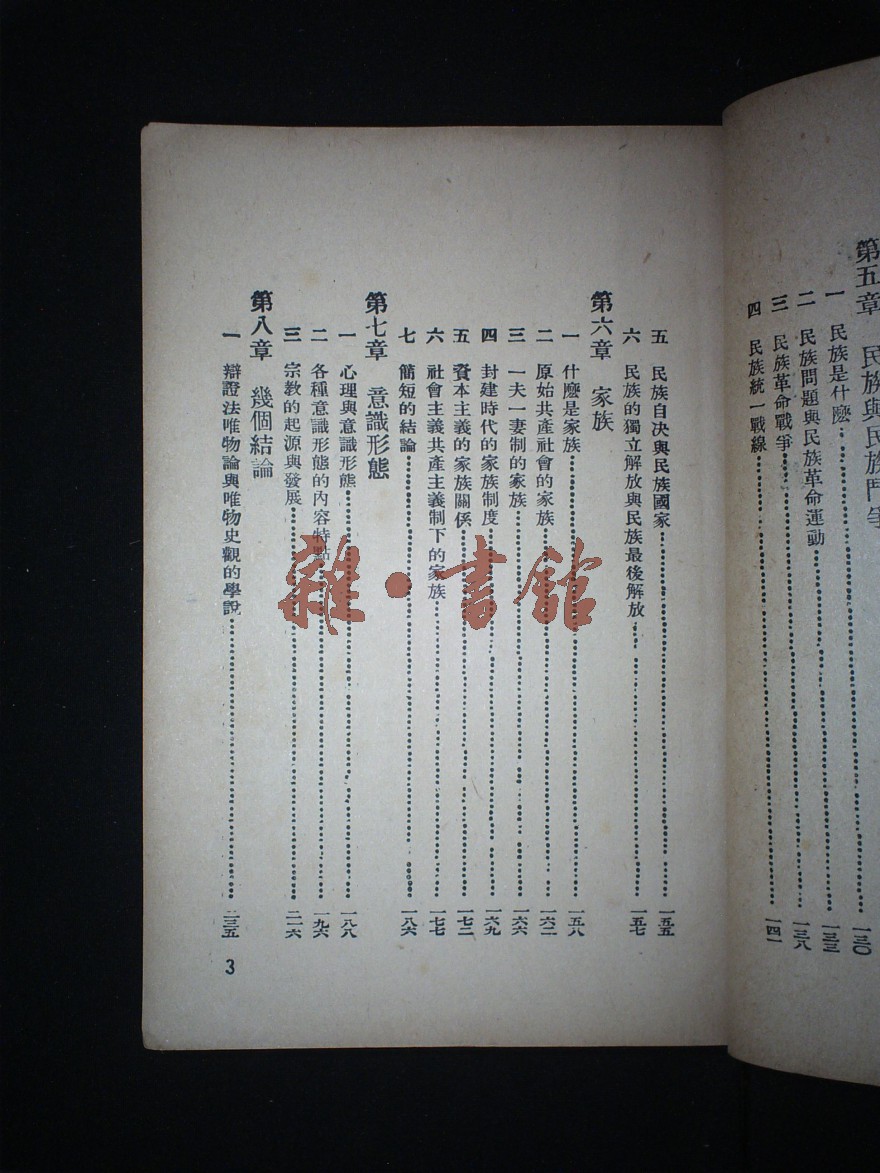 第五章　民族與民族鬥爭
一　民族是什麼……一三〇
二　民族問題與民族革命運動……一三三
三　民族革命戰爭……一三八
四　民族統一戰線……一四一
五　民族自决與民族國家……一五五
六　民族的獨立解放與民族最後解放……一五七
第六章　家族
一　什麼是家族……一五八
二　原始共產社會的家族……一六二
三　一夫一妻制的家族……一六六
四　封建時代的家族制度……一六九
五　資本主義的家族關係……一七二
六　社會主義共產主義制下的家族……一七七
七　簡短的結論……一八六
第七章　意識形態
一　心理與意識形態……一八八
二　各種意識形態的內容特點……一九六
三　宗教的起源與發展……二一六
第八章　幾個結論
一　辯證法唯物論與唯物史觀的學說……二三五
3
雜·書館